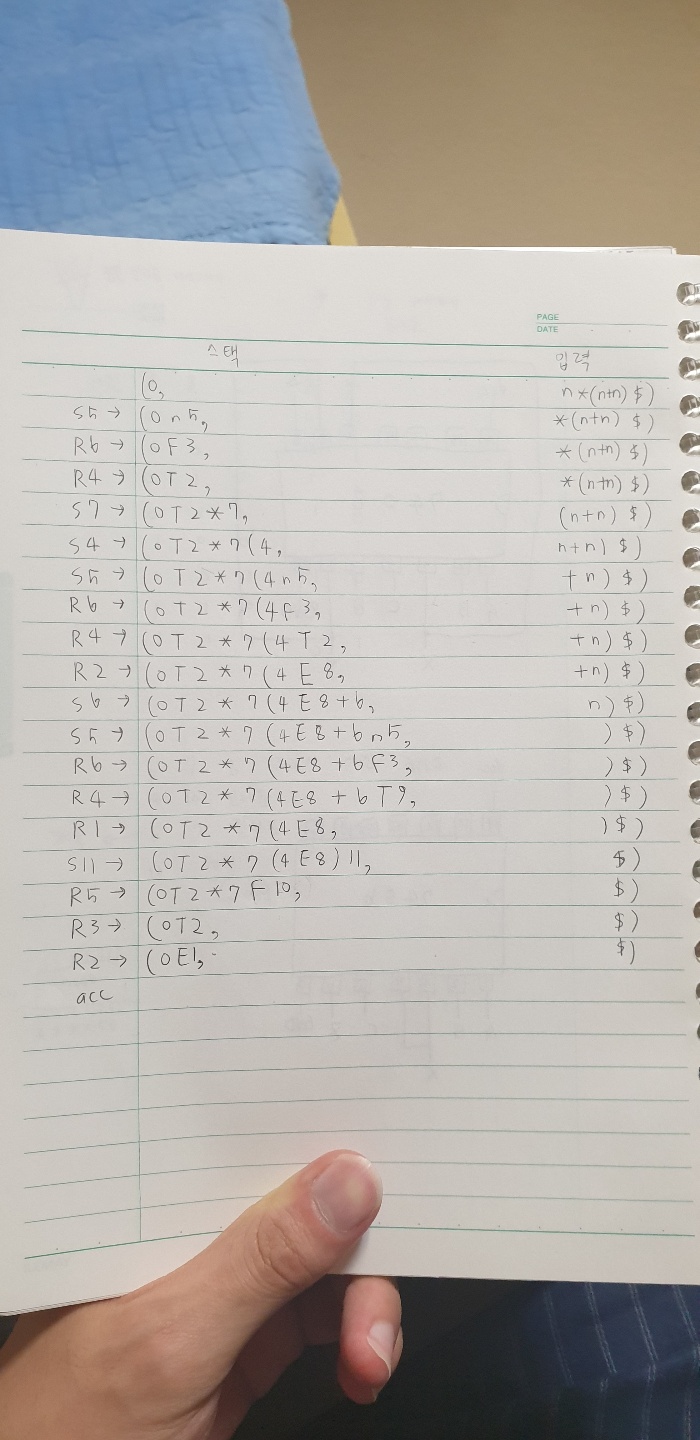 PAGE
DATE
스택 입력
(0, n*(n+n)$)
S5 → (0n5, *(n+n)$)
R6 → (0F3, *(n+n)$)
R4 → (0T2, *(n+n)$)
S7 → (0T2*7, (n+n)$)
S4 → (0T2*7(4, n+n)$)
S5 → (0T2*7(4n5, +n)$)
R6 → (0T2*7(4F3, +n)$)
R4 → (0T2*7(4T2, +n)$)
R2 → (0T2*7(4E8, +n)$)
S6 → (0T2*7(4E8+6, n)$)
S5 → (0T2*7(4E8+6n5, )$)
R6 → (0T2*7(4E8+6F3, )$)
R4 → (0T2*7(4E8+6T9, )$)
R1 → (0T2*7(4E8, )$)
S11 → (0T2*7(4E8)11, $)
R5 → (0T2*7F10, $)
R3 → (0T2, $)
R2 → (0E1, $)
acc